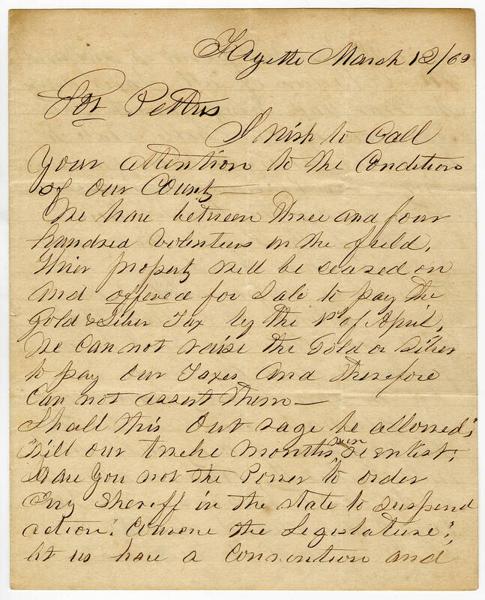 Fayette March 12/62
Gov Pettus
I wish to Call
Your attention to the Condition
of our County—
We have between three and four
hundred volenteers in the field,
Thier property will be seased on
And offered for Sale to pay the
Gold & Silver Tax by the 1st of April,
We Can not raise the Gold or Silver
to pay our Taxes And therefore
Can not assist Them—
Shall this Out rage be allowed;
Will our twelve months men reenlist;
Have You not the Power to order
Evry Sheriff in the State to Suspend
action; Convene the Legislature;
let us have a Convention and